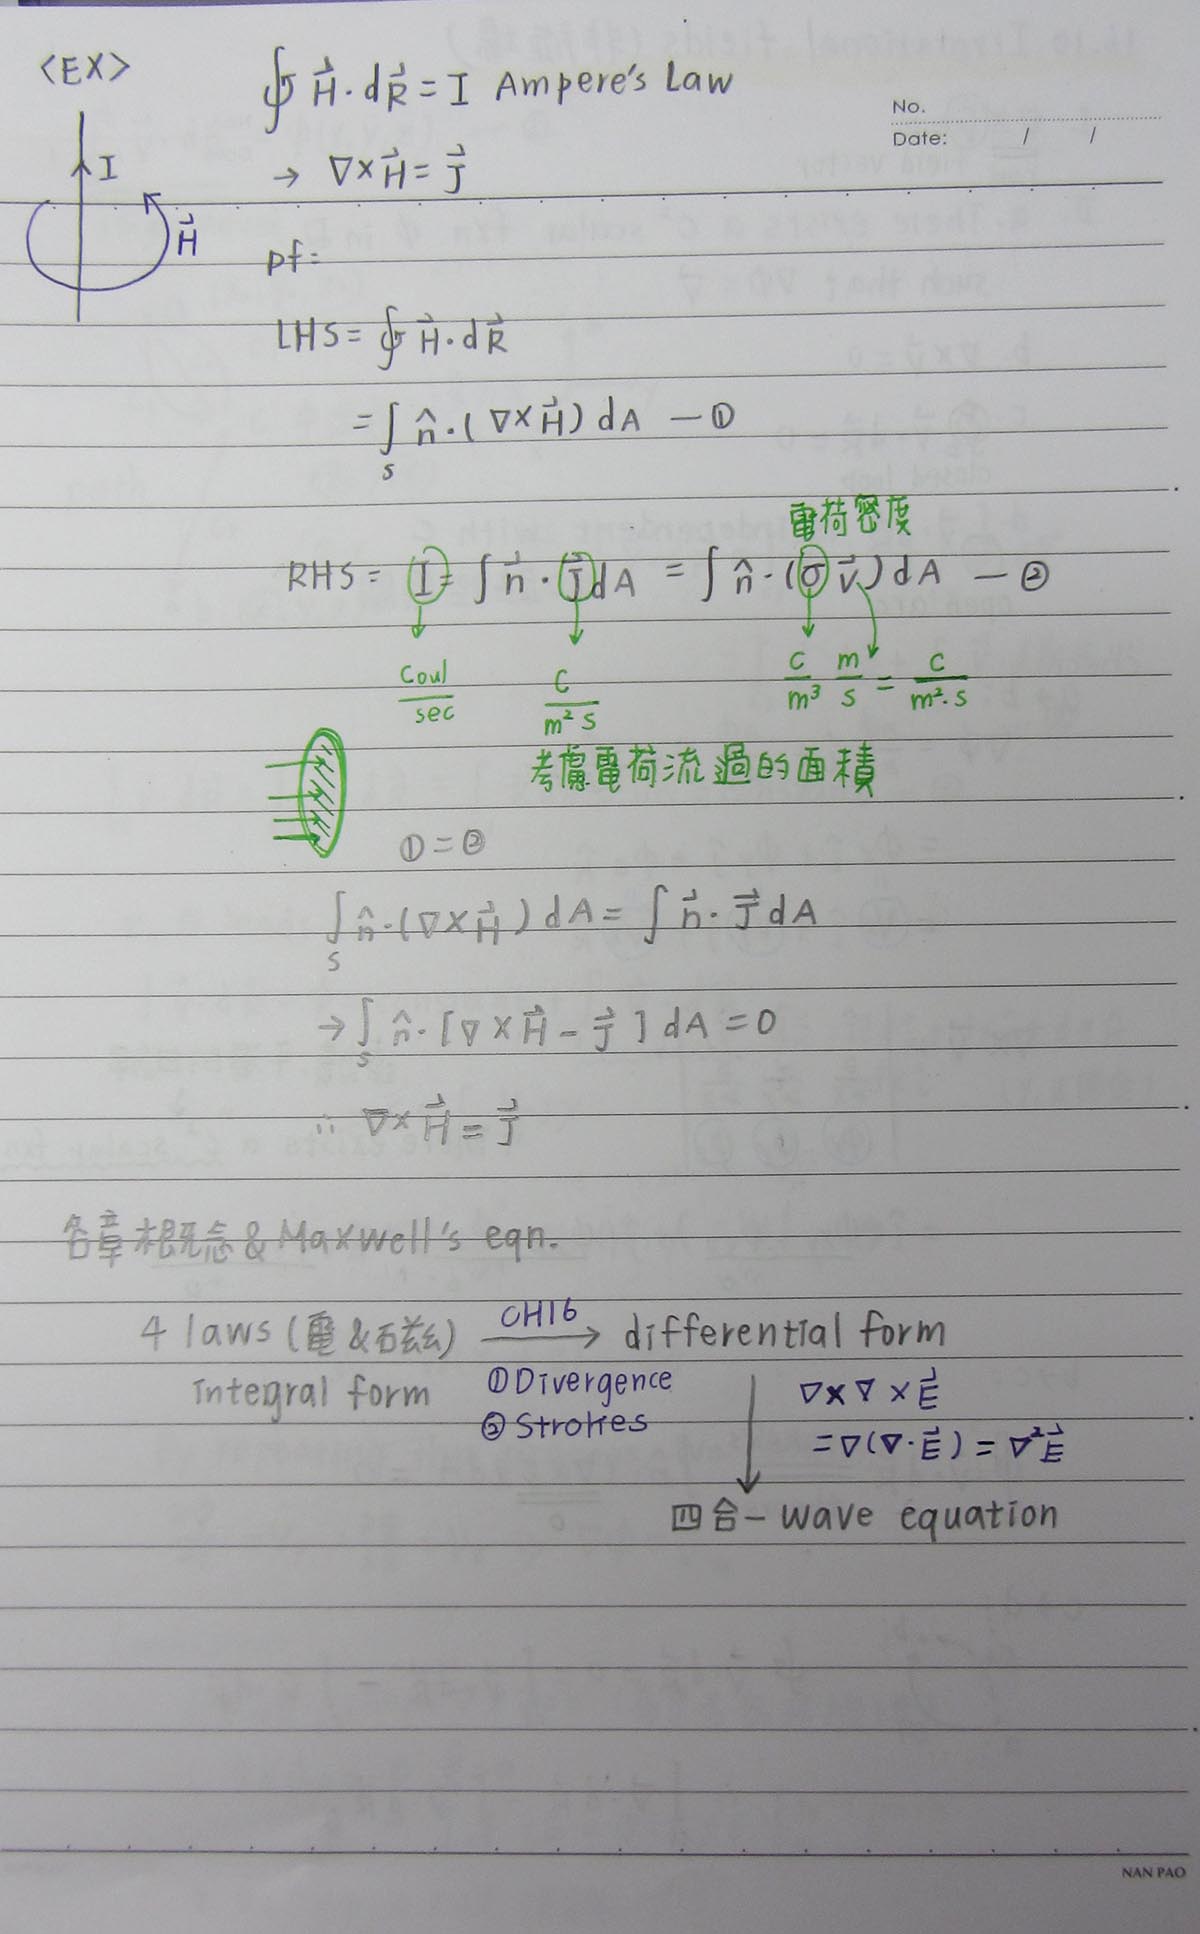 <EX>
∮ H⃗·dR⃗ = I Ampere's Law
No.
Date: / /
I
→ ∇×H⃗ = J⃗
H⃗
pf:
LHS = ∮ H⃗·dR⃗
= ∫ₛ n̂·(∇×H⃗) dA — ①
電荷密度
RHS = I = ∫ n⃗·J⃗ dA = ∫ n̂·(σ v⃗) dA — ②
Coul/sec C/m² s C/m³ m/s = C/m²·s
考慮電荷流過的面積
① = ②
∫ₛ n̂·(∇×H⃗) dA = ∫ n⃗·J⃗ dA
→ ∫ₛ n̂·[∇×H⃗ - J⃗] dA = 0
∴ ∇×H⃗ = J⃗
各章概念 & Maxwell's eqn.
4 laws (電&磁) CH16 → differential form
integral form ①Divergence ∇×∇×E⃗
②Strokes = ∇(∇·E⃗) = ∇²E⃗
四合一 wave equation
NAN PAO